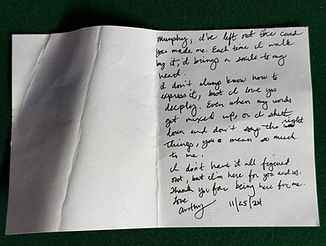 Murphy, I've left out the card
you made me. Each time I walk
by it, it brings a smile to my
heart.
I don't always know how to
express it, but I love you
deeply. Even when my words
get mixed up, or I shut
down and don't say the right
things, you mean so much
to me.
I don't have it all figured
out, but I'm here for you and us.
Thank you for being here for me.
Love
11/25/24